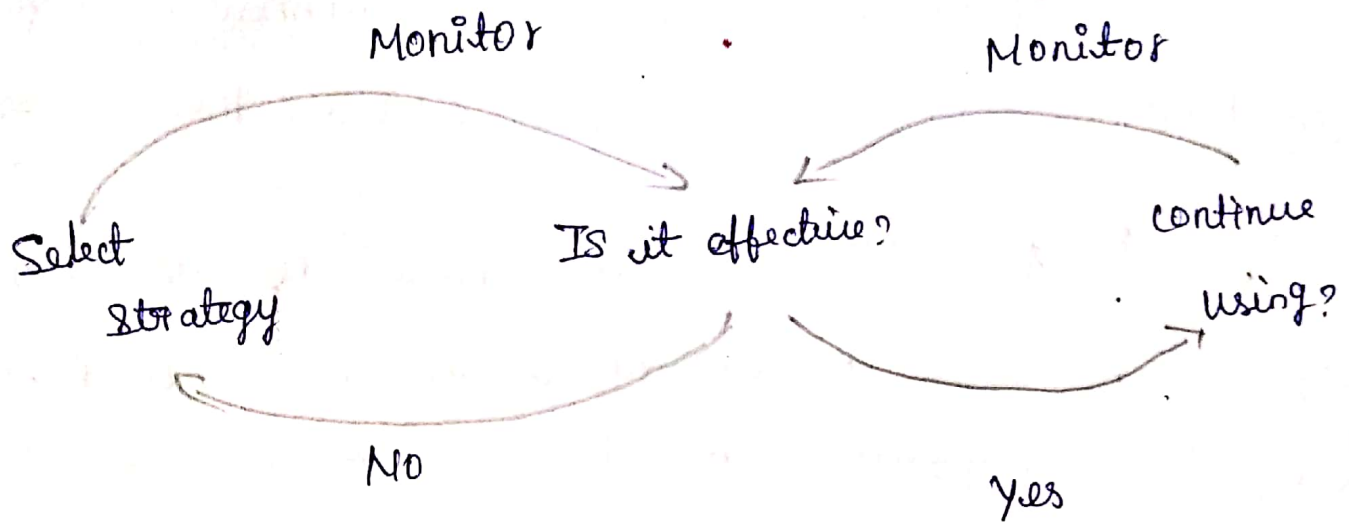 Monitor
Monitor
Select
strategy
Is it effective?
continue
using?
No
Yes